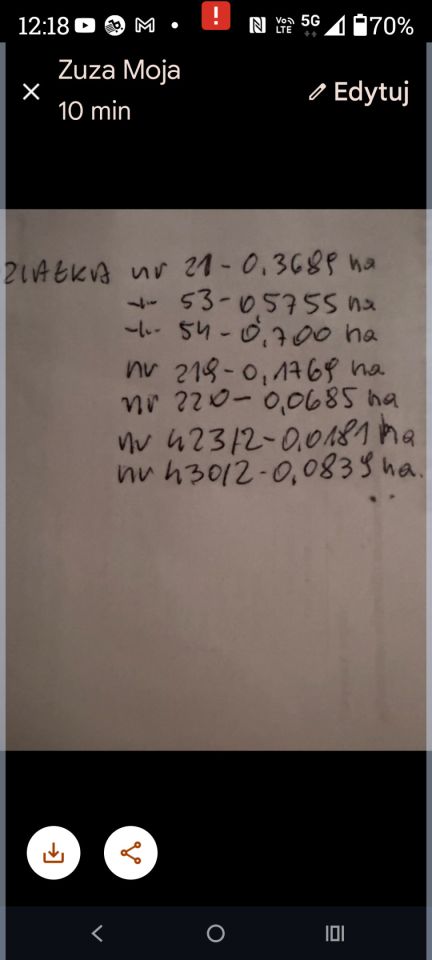 12:18 Vo)) LTE 5G 70%
Zuza Moja
10 min
Edytuj
ZIAŁKA nr 21 - 0,3689 ha
-||- 53 - 0,5755 ha
-||- 54 - 0,700 ha
nr 219 - 0,1769 ha
nr 220 - 0,0685 ha
nr 423/2 - 0,0181 ha
nr 430/2 - 0,0839 ha.